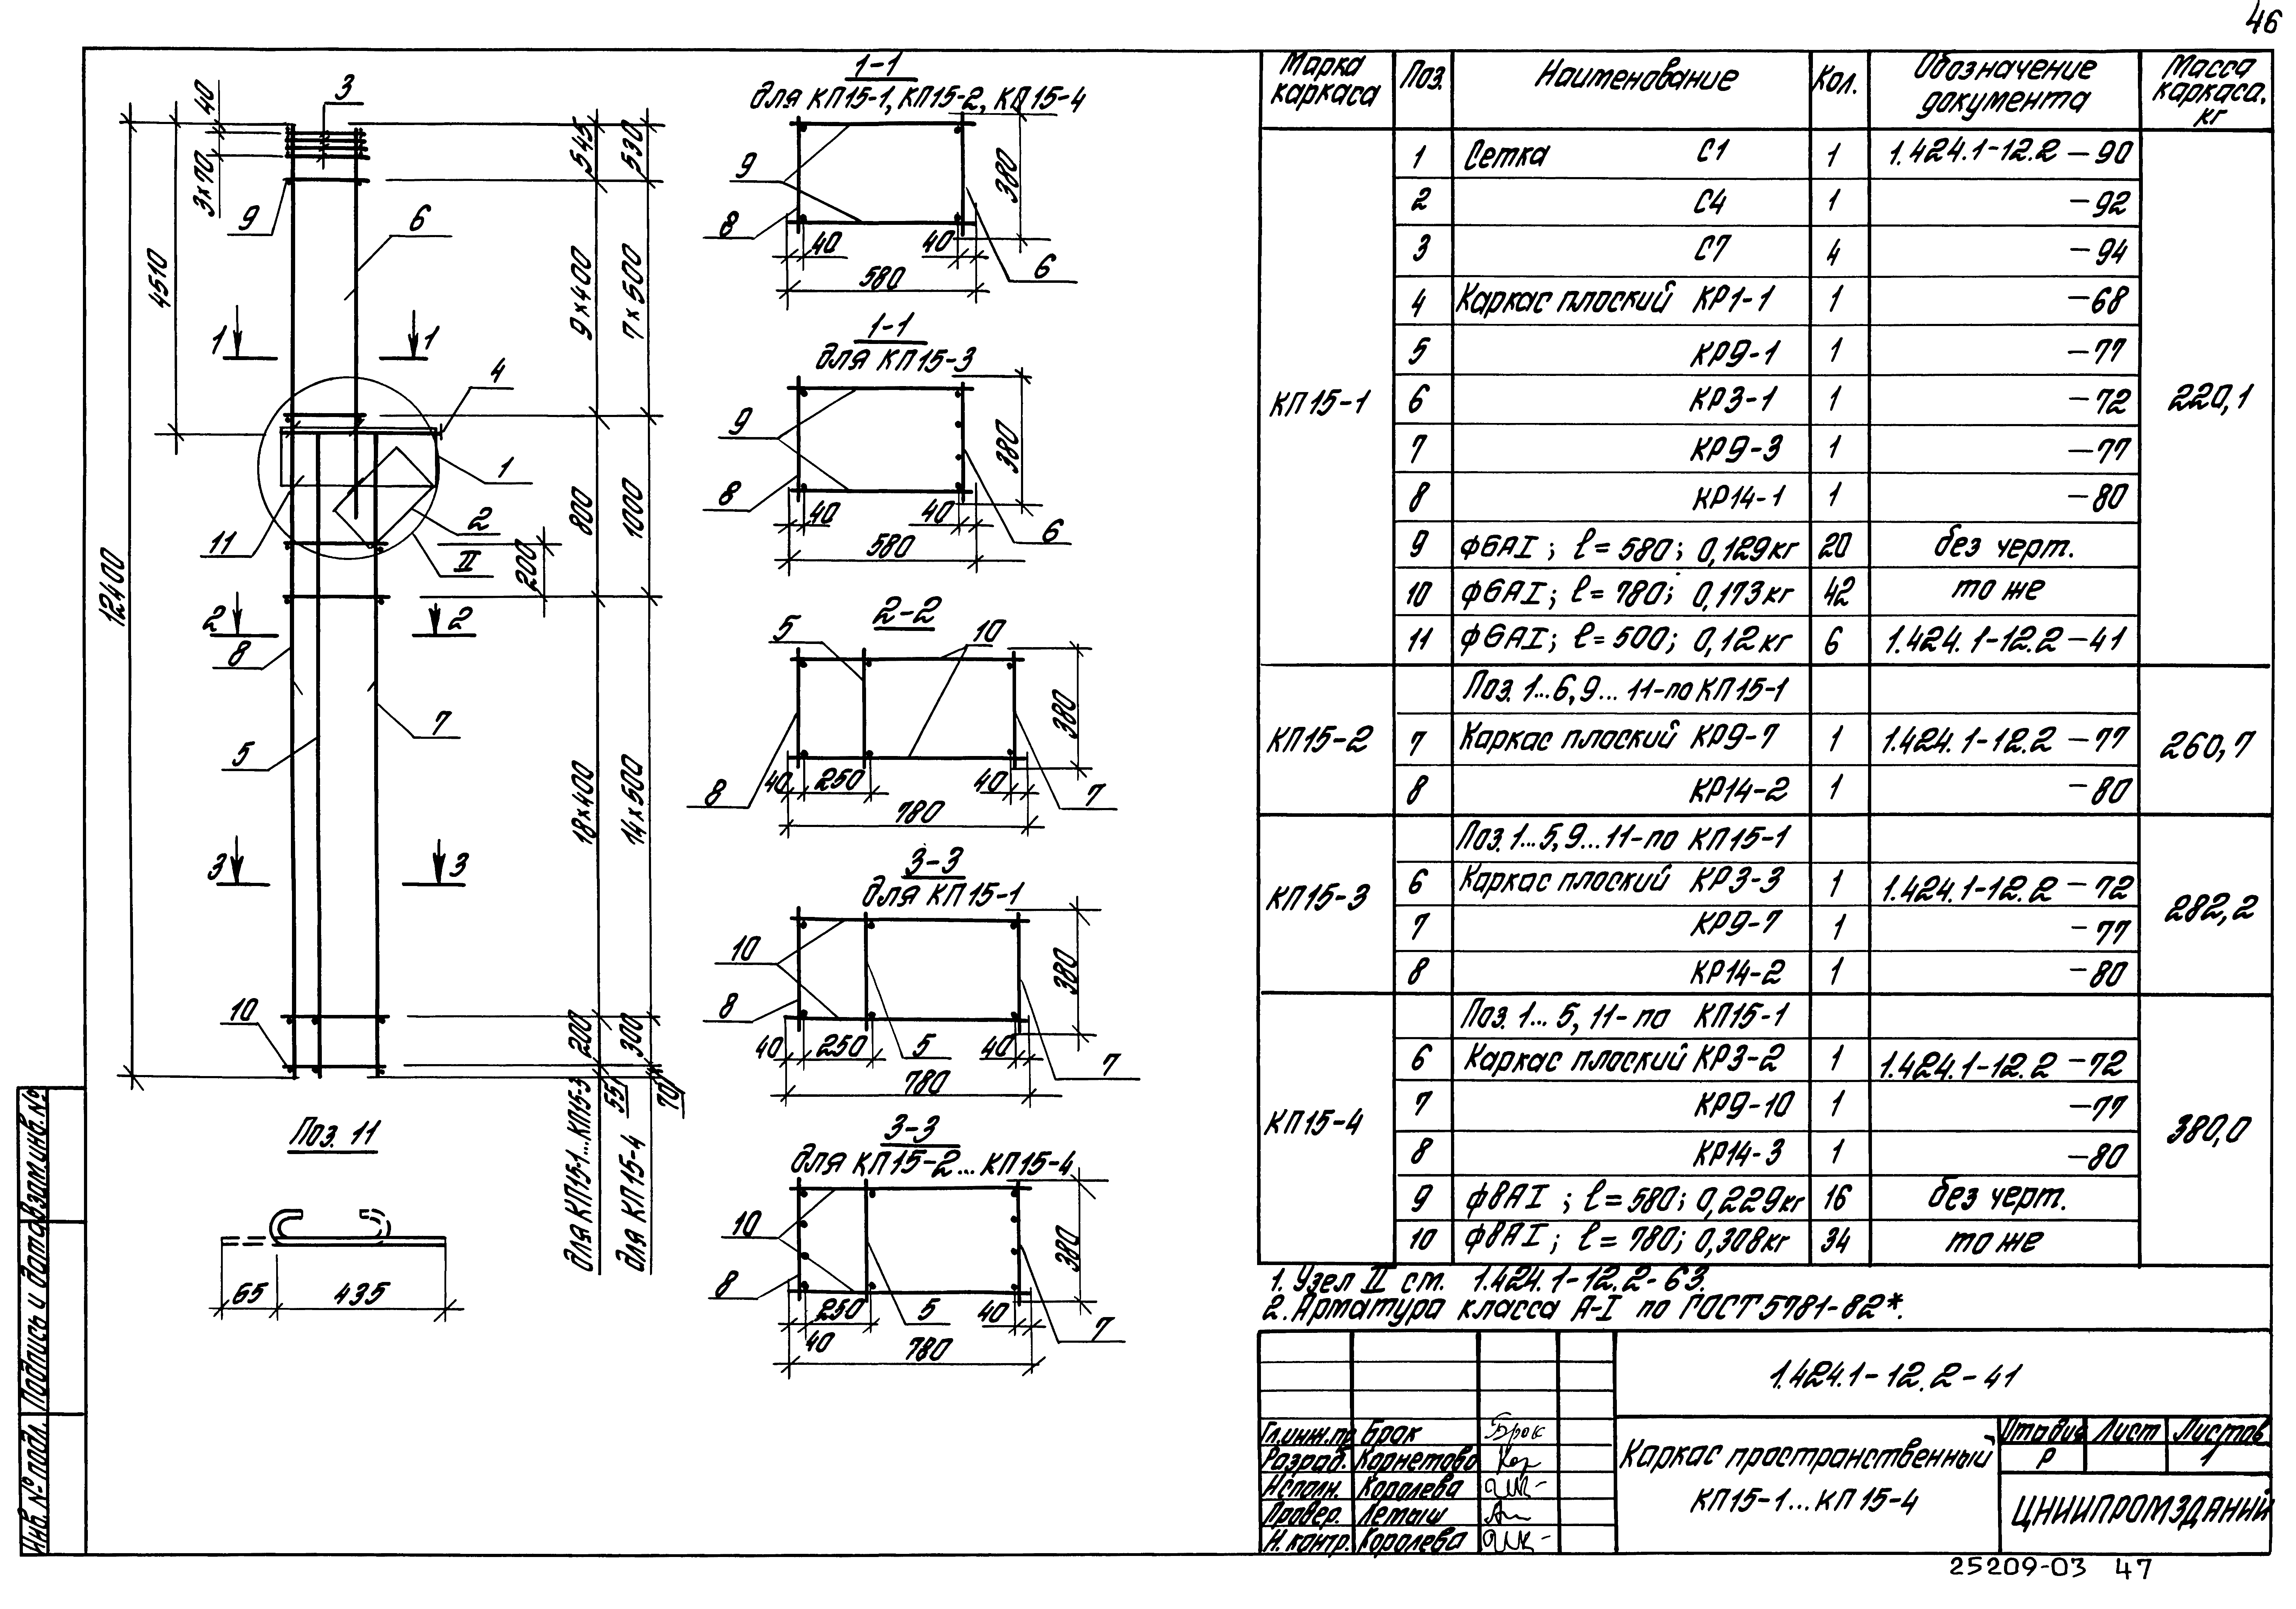 46
40
3
3×70
9
6
4510
12400
545
530
9×400
7×500
1
1
4
1
2
11
II
200
800
1000
2
2
8
7
5
18×400
14×500
3
3
10
200
300
55
70
для КП15-1...КП15-3
для КП15-4
Поз. 11
65
435
1-1
для КП15-1, КП15-2, КП15-4
9
8
40
40
580
380
6
1-1
для КП15-3
9
8
40
40
580
380
6
2-2
5
10
8
40
250
40
780
380
7
3-3
для КП15-1
10
8
40
250
5
40
780
380
7
3-3
для КП15-2...КП15-4
10
8
250
40
5
40
780
380
7
Марка каркаса Поз. Наименование Кол. Обозначение документа Масса каркаса, кг
КП15-1 220,1
1 Сетка С1 1 1.424.1-12.2 -90
2 С4 1 -92
3 С7 4 -94
4 Каркас плоский КР1-1 1 -68
5 КР9-1 1 -77
6 КР3-1 1 -72
7 КР9-3 1 -77
8 КР14-1 1 -80
9 ф6АI; ℓ=580; 0,129кг 20 без черт.
10 ф6АI; ℓ=780; 0,173кг 42 то же
11 ф6АI; ℓ=500; 0,12кг 6 1.424.1-12.2-41
КП15-2 260,7
Поз. 1...6, 9...11-по КП15-1
7 Каркас плоский КР9-7 1 1.424.1-12.2 -77
8 КР14-2 1 -80
КП15-3 282,2
Поз. 1...5, 9...11-по КП15-1
6 Каркас плоский КР3-3 1 1.424.1-12.2 -72
7 КР9-7 1 -77
8 КР14-2 1 -80
КП15-4 380,0
Поз. 1...5, 11-по КП15-1
6 Каркас плоский КР3-2 1 1.424.1-12.2 -72
7 КР9-10 1 -77
8 КР14-3 1 -80
9 ф8АI; ℓ=580; 0,229кг 16 без черт.
10 ф8АI; ℓ=780; 0,308кг 34 то же
1. Узел II ст. 1.424.1-12.2-63.
2. Арматура класса А-I по ГОСТ 5781-82*.
1.424.1-12.2-41
Гл.инж.пр Брак Брак
Разраб. Корнетова Кор
Исполн. Королева
Провер. Летыш
Н. контр. Королева
Каркас пространственный
КП15-1...КП15-4
Стадия Лист Листов
Р 1
ЦНИИПРОМЗДАНИЙ
Взам.инв.№
Подпись и дата
Инв. № подл.
25209-03 47